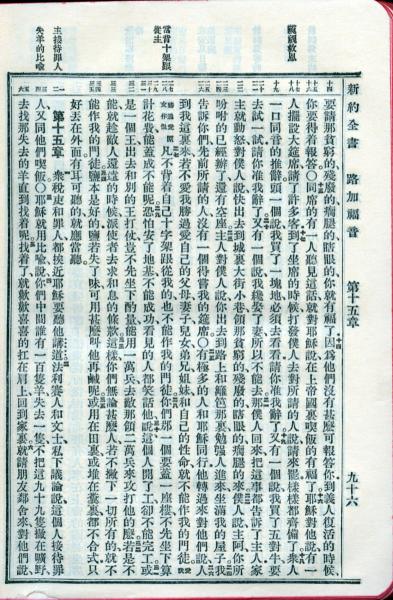 新約全書　路加福音　第十五章　九十六
藐視救恩
當背十架跟
從主
主接待罪人
失羊的比喻
要請那貧窮的殘廢的瘸腿的瞎眼的你就有福了因為他們沒有甚麼可報答你到義人復活的時候
你要得着報答〇同席的有一人聽見這話就對耶穌說在上帝國裏喫飯的有福了耶穌對他說有一
人擺設大筵席請了許多客到了坐席的時候打發僕人去對所請的人說請來罷樣樣都齊備了衆人
一口同音的推辭頭一個說我買了一塊地必須去看看請你准我辭了又有一個說我買了五對牛要
去試一試請你准我辭了又有一個說我纔娶了妻所以不能去那僕人回來把這事都告訴了主人家
主就動怒對僕人說快出去到城裏大街小巷領那貧窮的殘廢的瞎眼的瘸腿的來僕人說主阿你所
吩咐的已經辦了還有空座主人對僕人說你出去到路上和籬笆那裏勉强人進來坐滿我的屋子我
告訴你們先前所請的人沒有一個得嘗我的筵席〇有極多的人和耶穌同行他轉過來對他們說人
到我這裏來若不愛我勝過愛自己的父母妻子兒女弟兄姐妹和自己的性命就不能作我的門徒
凡不背着自己十字架跟從我的也不能作我的門徒你們那一個要蓋一座樓不先坐下算
計花費能蓋成不能呢恐怕安了地基不能成功看見的人都笑話他說這個人開了工卻不能完工或
是一個王出去和別的王打仗豈不先坐下酌量能用一萬兵去敵那領二萬兵來攻打他的麼若是不
能就趁敵人還遠的時候派使者去求和息的條款這樣你們無論甚麼人若不撇下一切所有的就不
能作我的門徒鹽本是好的鹽若失了味可用甚麼叫他再鹹呢或用在田裏或堆在糞裏都不合式只
好丟在外面有耳可聽的就應當聽
第十五章　衆稅吏和罪人都挨近耶穌要聽他講道法利賽人和文士私下議論說這個人接待罪
人又同他們喫飯〇耶穌就用比喻說你們中間誰有一百隻羊失去一隻不把這九十九隻撇在曠野
去找那失去的羊直到找着呢找着了就歡歡喜喜的扛在肩上回到家裏就請朋友鄰舍來對他們說